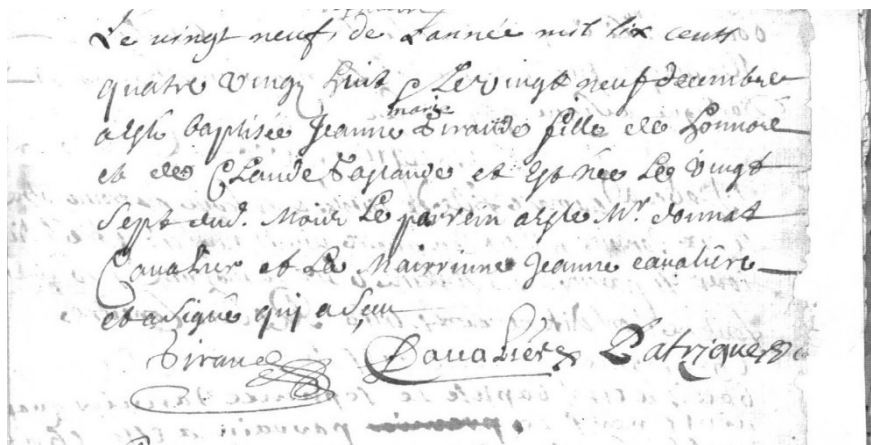 Le vingt neuf de L'année mil six cents
quatre vingt huit & Le vingt neuf decembre
a esté baptisée Jeanne marie Giraude fille de honnoré
et de Claude et est née Le vingt
Sept dud. Mois Le parrein a esté Mr. donnat
Cavalier et La Mairrinne Jeanne cavaliere
et a signé qui a sçeu
Giraud Cavalier